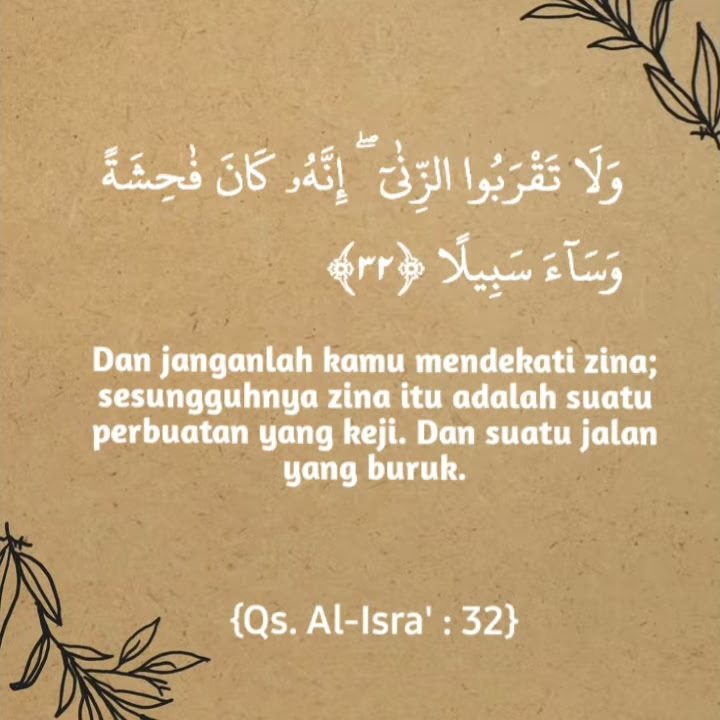 وَلَا تَقْرَبُوا الزِّنٰىٓ ۖ إِنَّهُۥ كَانَ فٰحِشَةً
وَسَآءَ سَبِيلًا ﴿٣٢﴾
Dan janganlah kamu mendekati zina;
sesungguhnya zina itu adalah suatu
perbuatan yang keji. Dan suatu jalan
yang buruk.
{Qs. Al-Isra' : 32}